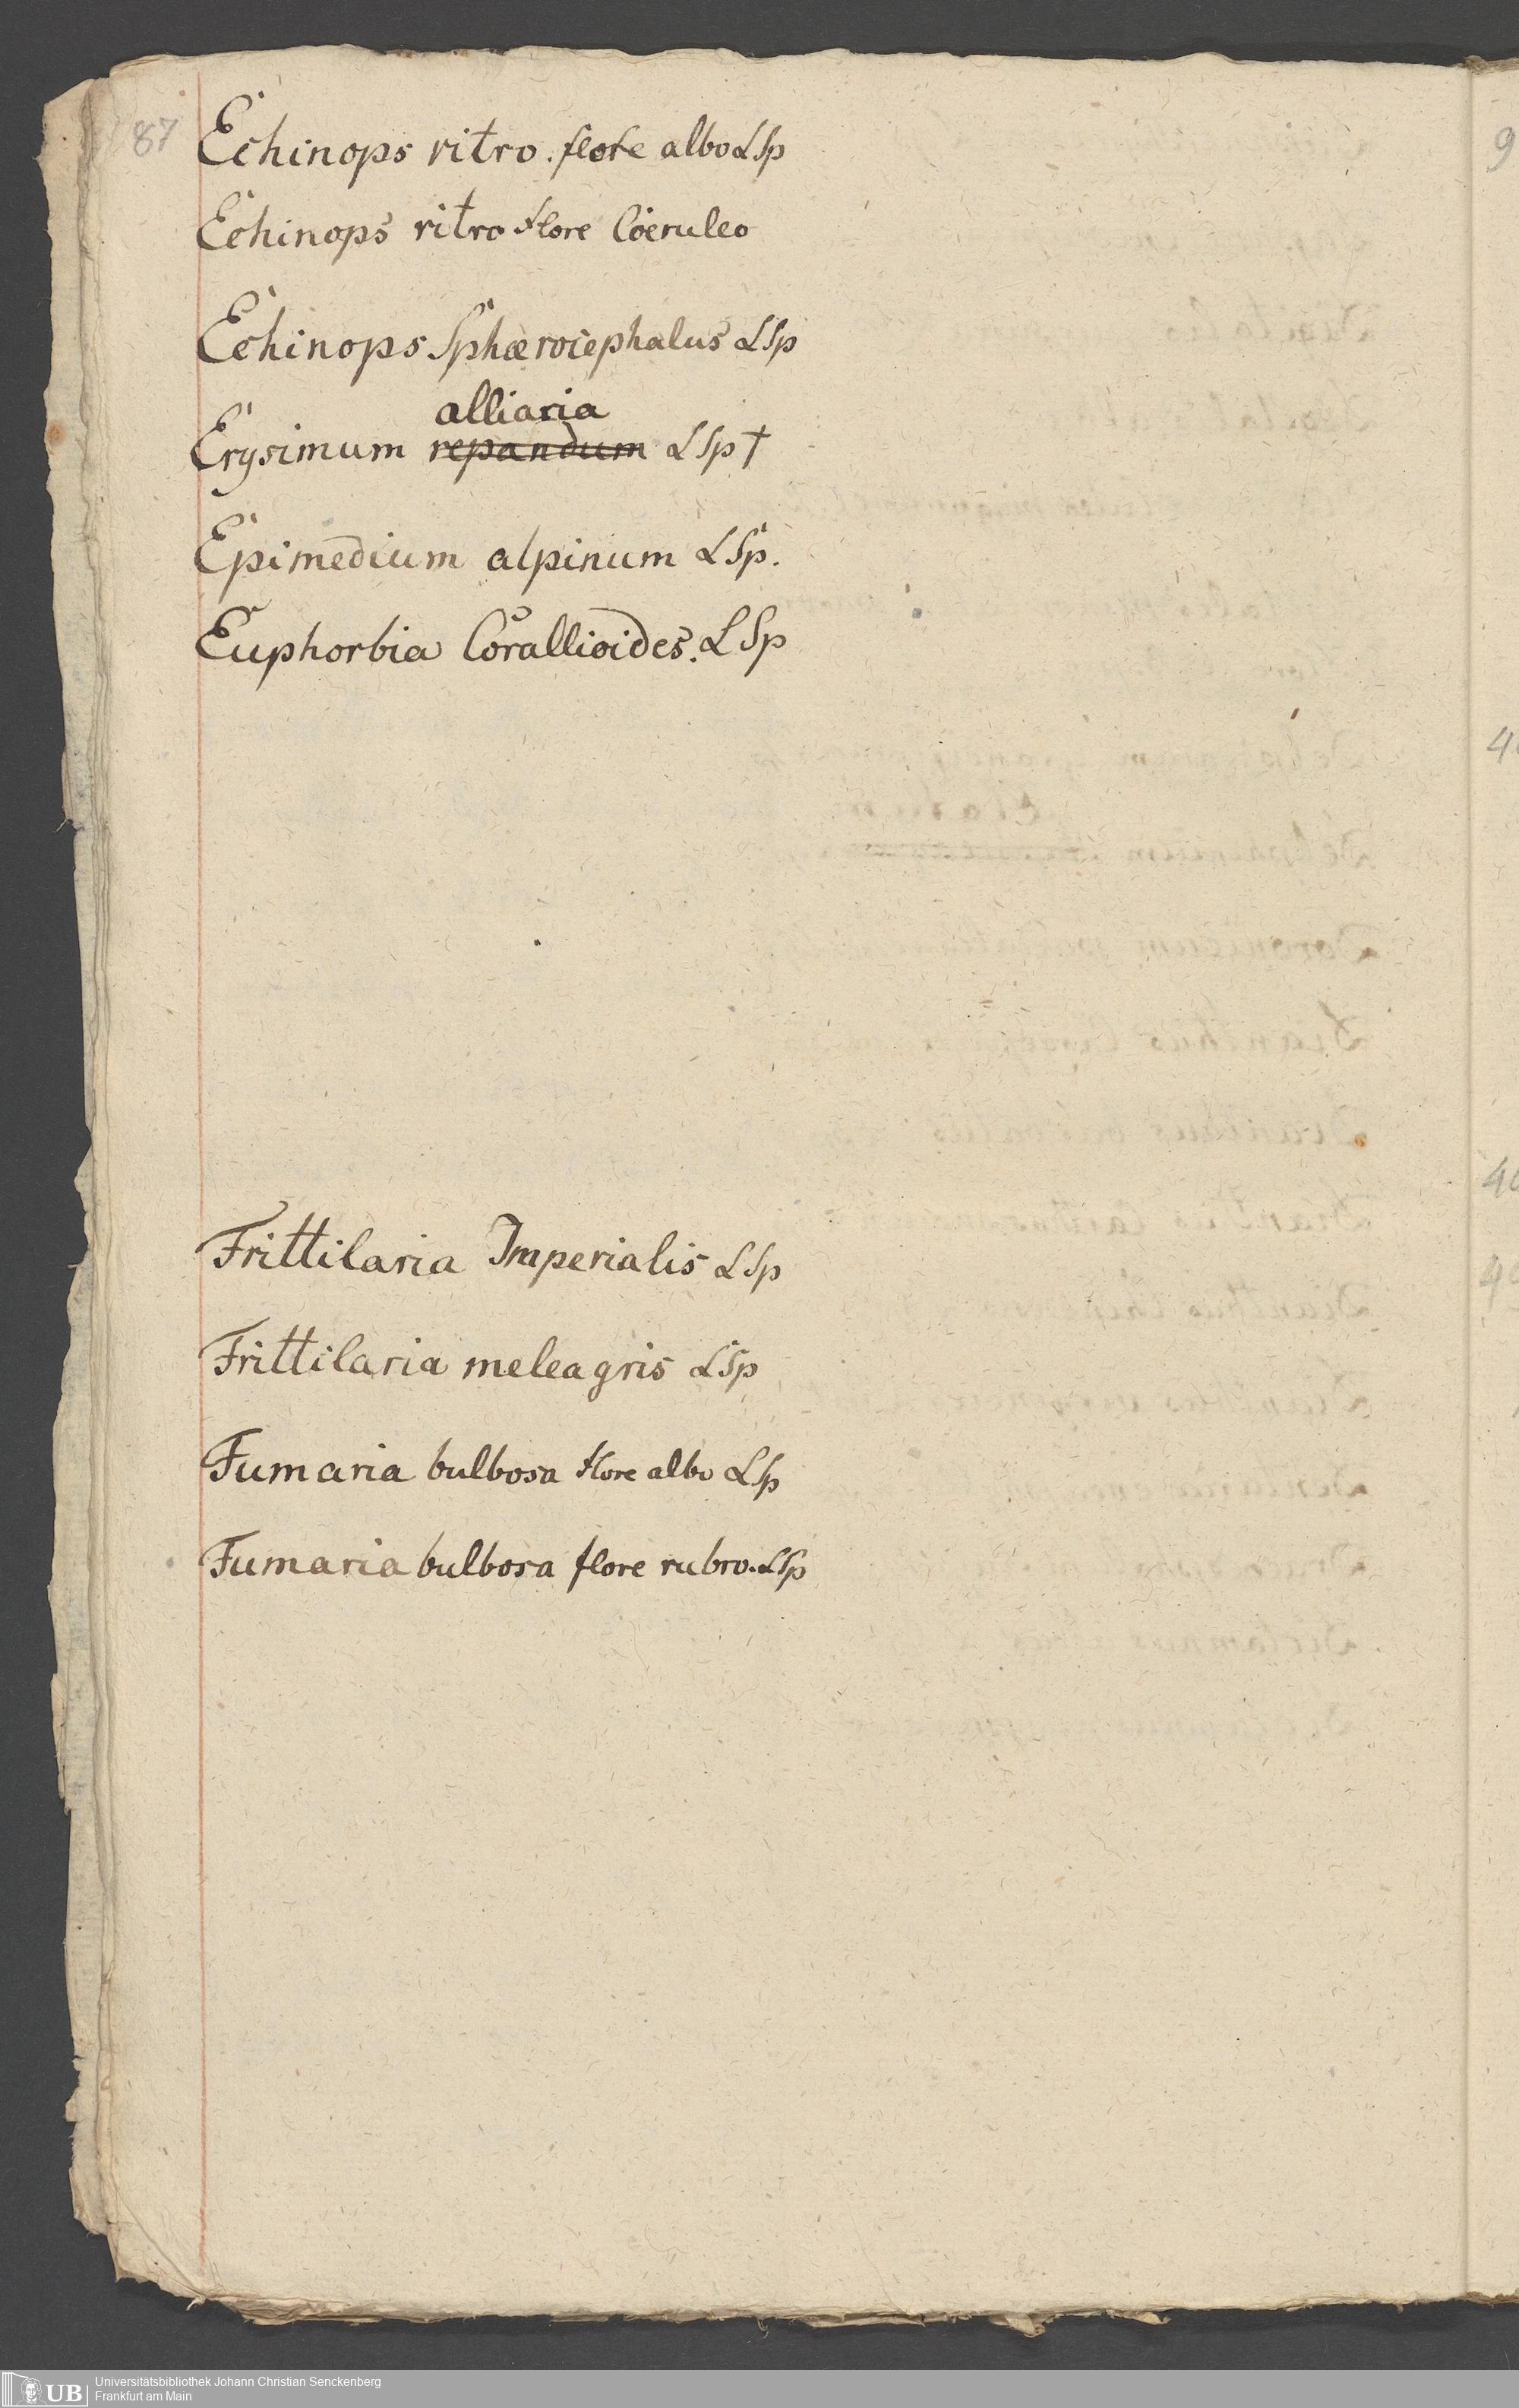 87 Echinops ritro. flore albo LSp
Echinops ritro flore Coeruleo
Echinops Sphærocephalus LSp
alliaria
Erysimum repandum LSp †
Epimedium alpinum LSp.
Euphorbia Corallioides. LSp
Frittilaria Imperialis LSp
Frittilaria meleagris LSp
Fumaria bulbosa flore albo LSp
Fumaria bulbosa flore rubro. LSp
9
UB
Universitätsbibliothek Johann Christian Senckenberg
Frankfurt am Main